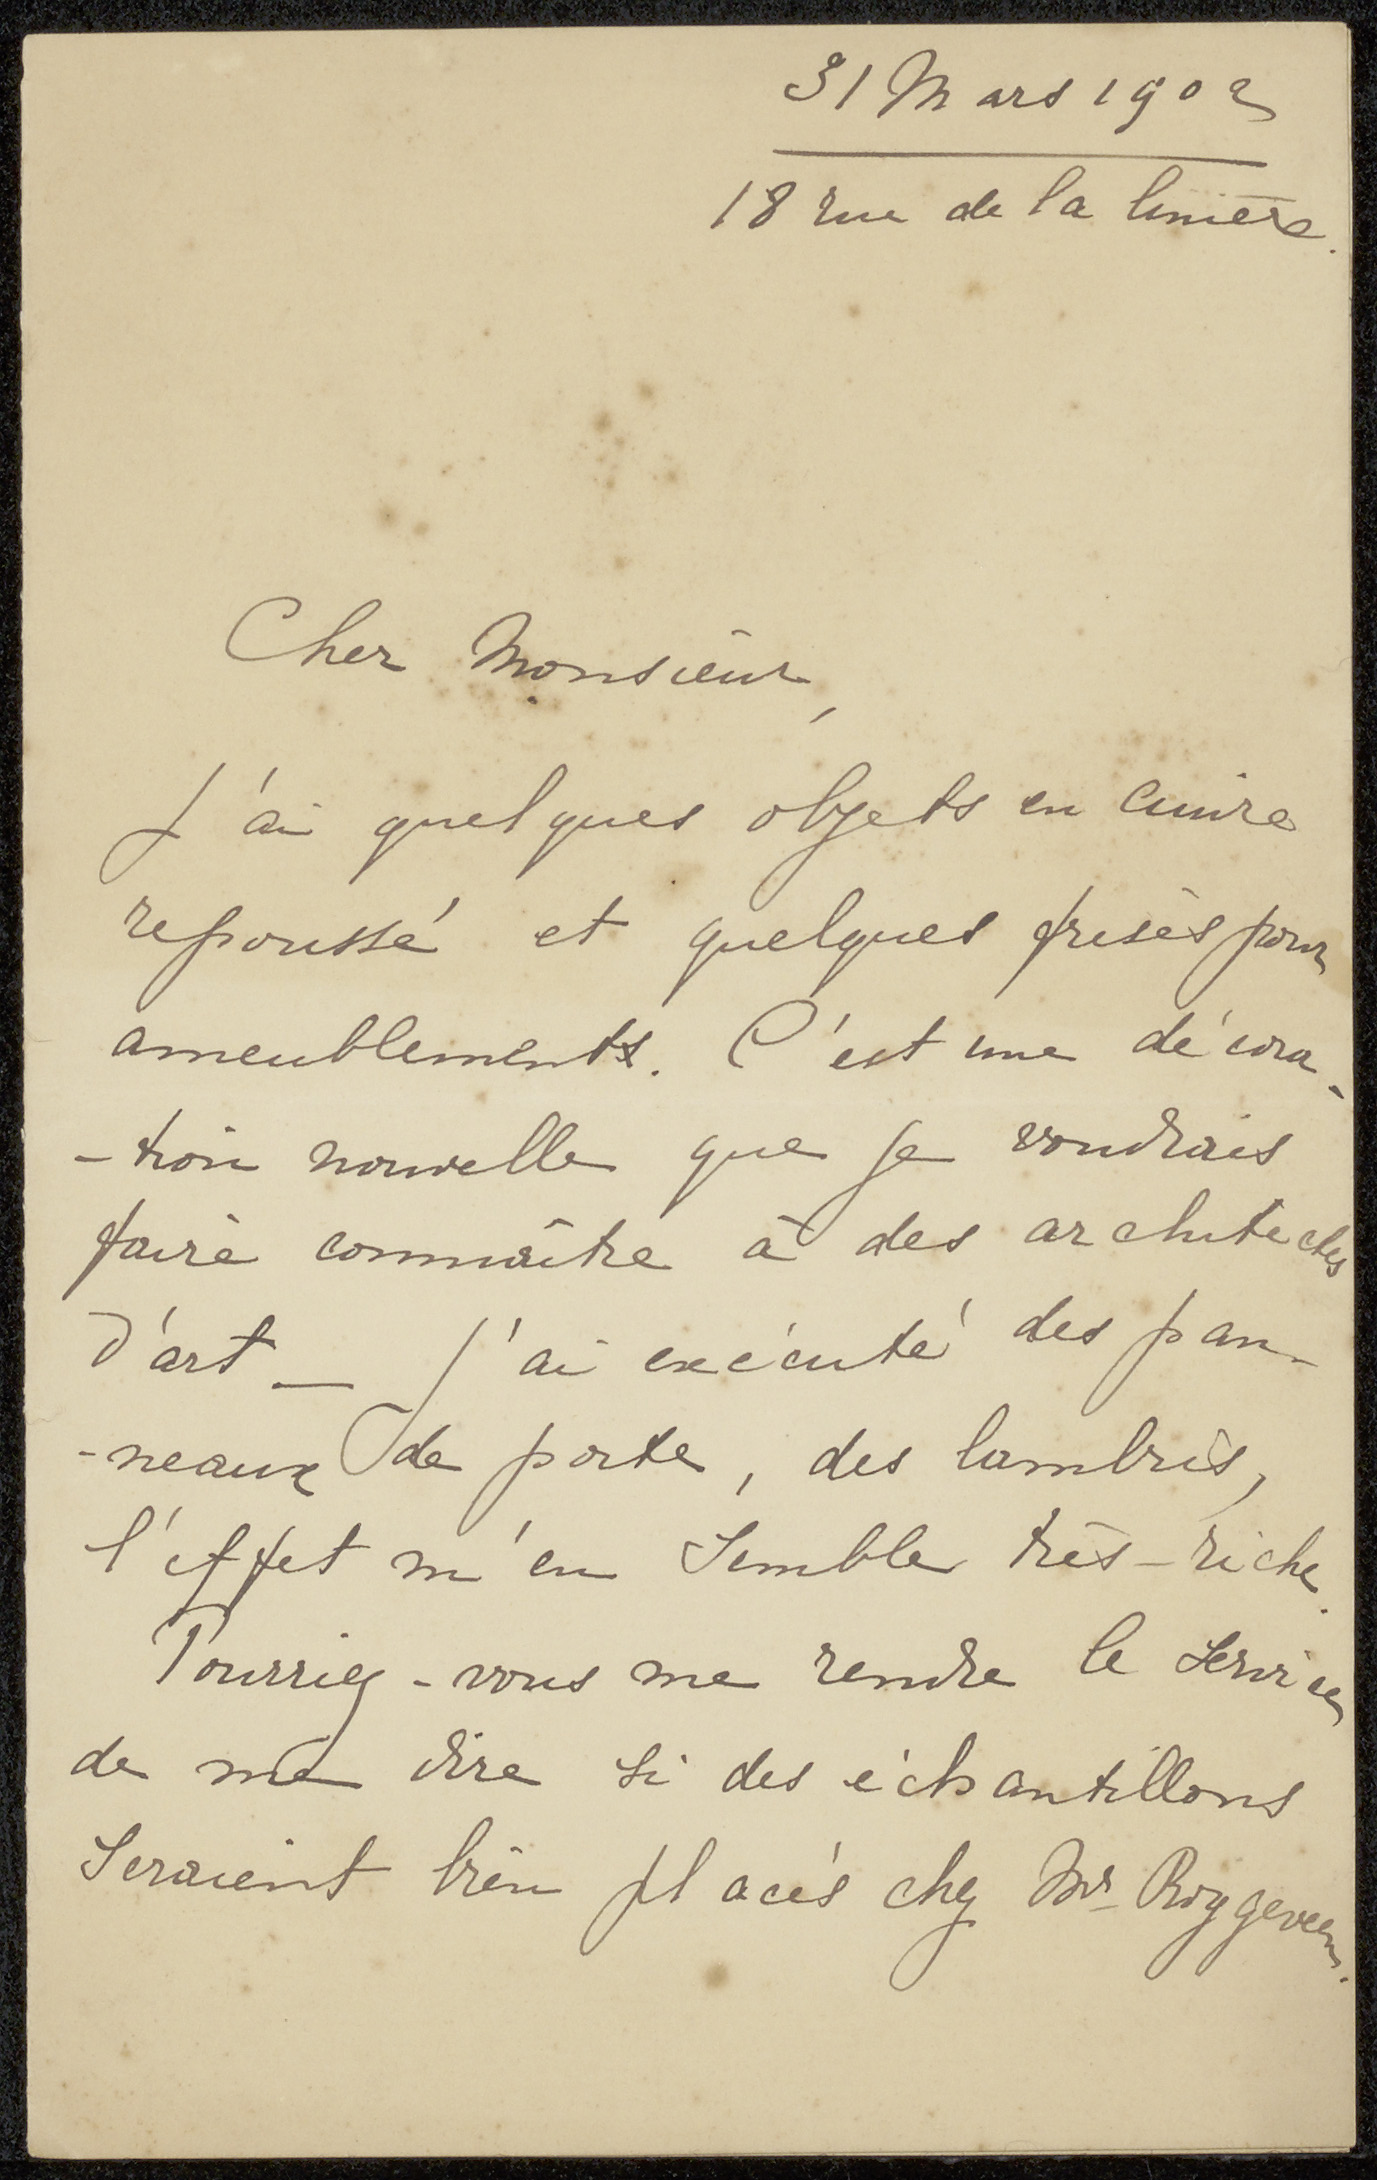 31 Mars 1902
18 rue de la linière.
Cher Monsieur,
J'ai quelques objets en cuivre
repoussé et quelques frises pour
ameublements. C'est une décora-
-tion nouvelle que je voudrais
faire connaître à des architectes
d'art _ J'ai exécuté des pan-
-neaux de porte, des lambris,
l'effet m'en semble très-riche.
Pourriez-vous me rendre le service
de me dire si des échantillons
seraient bien placés chez Mr